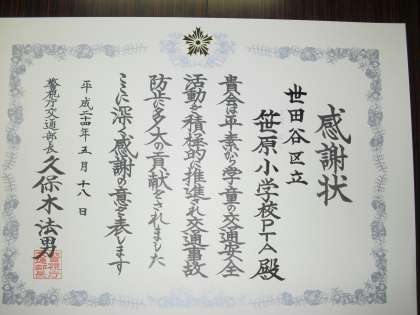 感謝状
世田谷区立
笹原小学校PTA殿
貴会は平素から学童の交通安全
活動を積極的に推進され交通事故
防止に多大の貢献をされました
ここに深く感謝の意を表します
平成二十四年五月十八日
警視庁交通部長 久保木法男